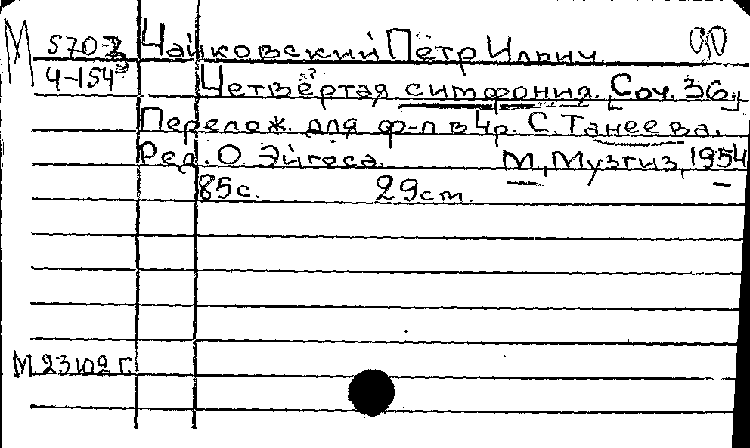 М 570-3 Чайковский Пётр Ильич
4-154 Четвёртая симфония. [Соч. 36.]
Перелож. для ф-п в 4 р. С. Танеева.
Ред. О. Эйгеса. М, Музгиз, 1954
85с. 29cm.
М 23102 г